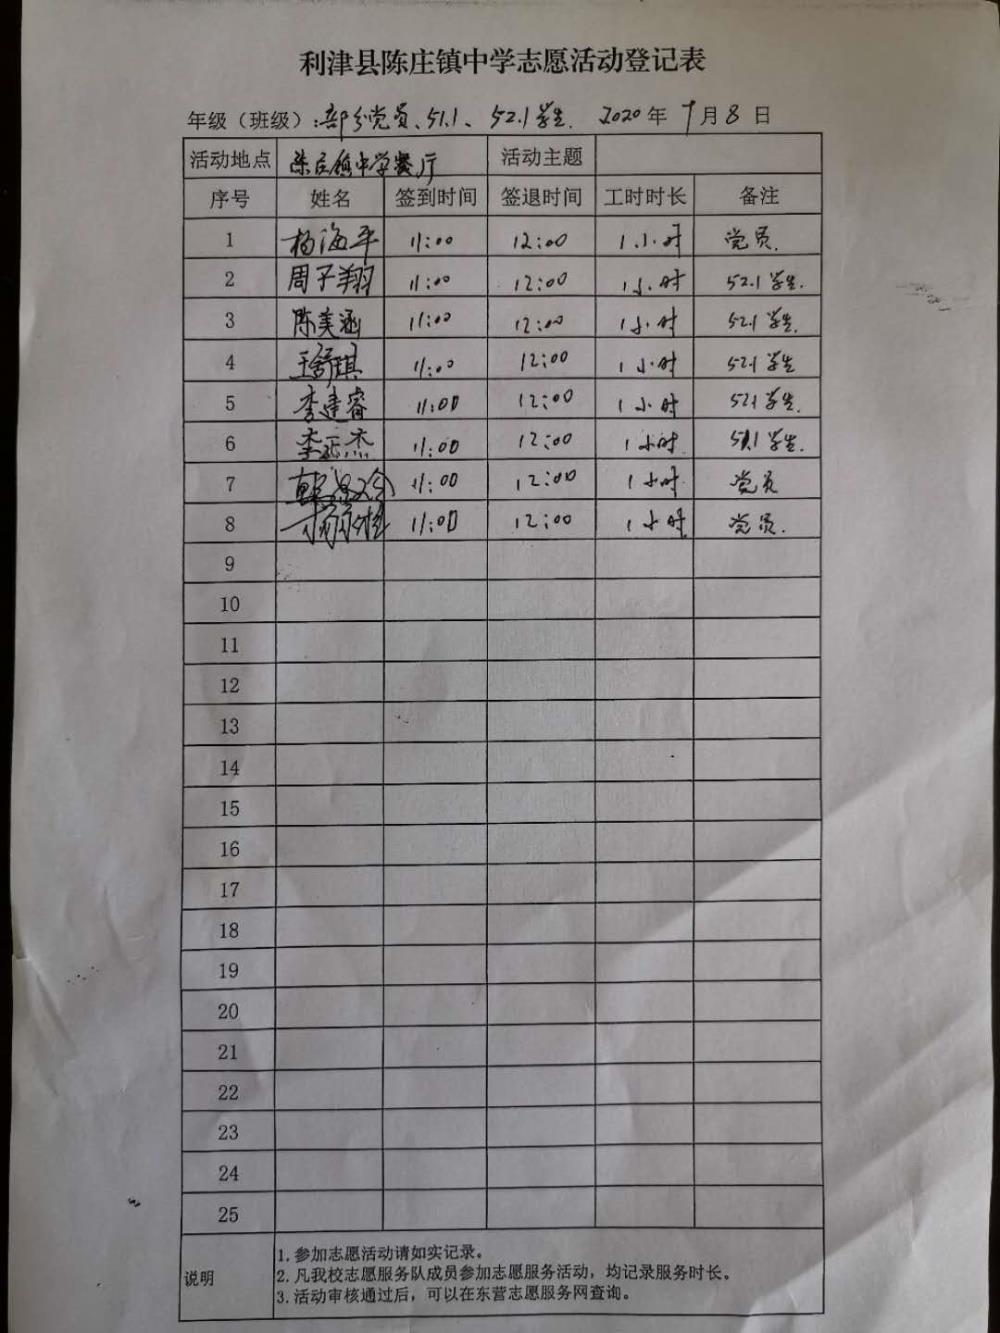 利津县陈庄镇中学志愿活动登记表
年级（班级）：部分党员、51.1、52.1学生. 2020年 9月8日
活动地点 陈庄镇中学餐厅 活动主题
序号 姓名 签到时间 签退时间 工时时长 备注
1 杨海平 11:00 12:00 1小时 党员.
2 周子翔 11:00 12:00 1小时 52.1学生.
3 陈美涵 11:00 12:00 1小时 52.1学生.
4 王舒琪 11:00 12:00 1小时 52.1学生
5 李建睿 11:00 12:00 1小时 52.1学生.
6 李正杰 11:00 12:00 1小时 51.1学生.
7 11:00 12:00 1小时 党员
8 11:00 12:00 1小时 党员.
9
10
11
12
13
14
15
16
17
18
19
20
21
22
23
24
25
说明
1. 参加志愿活动请如实记录。
2. 凡我校志愿服务队成员参加志愿服务活动，均记录服务时长。
3. 活动审核通过后，可以在东营志愿服务网查询。